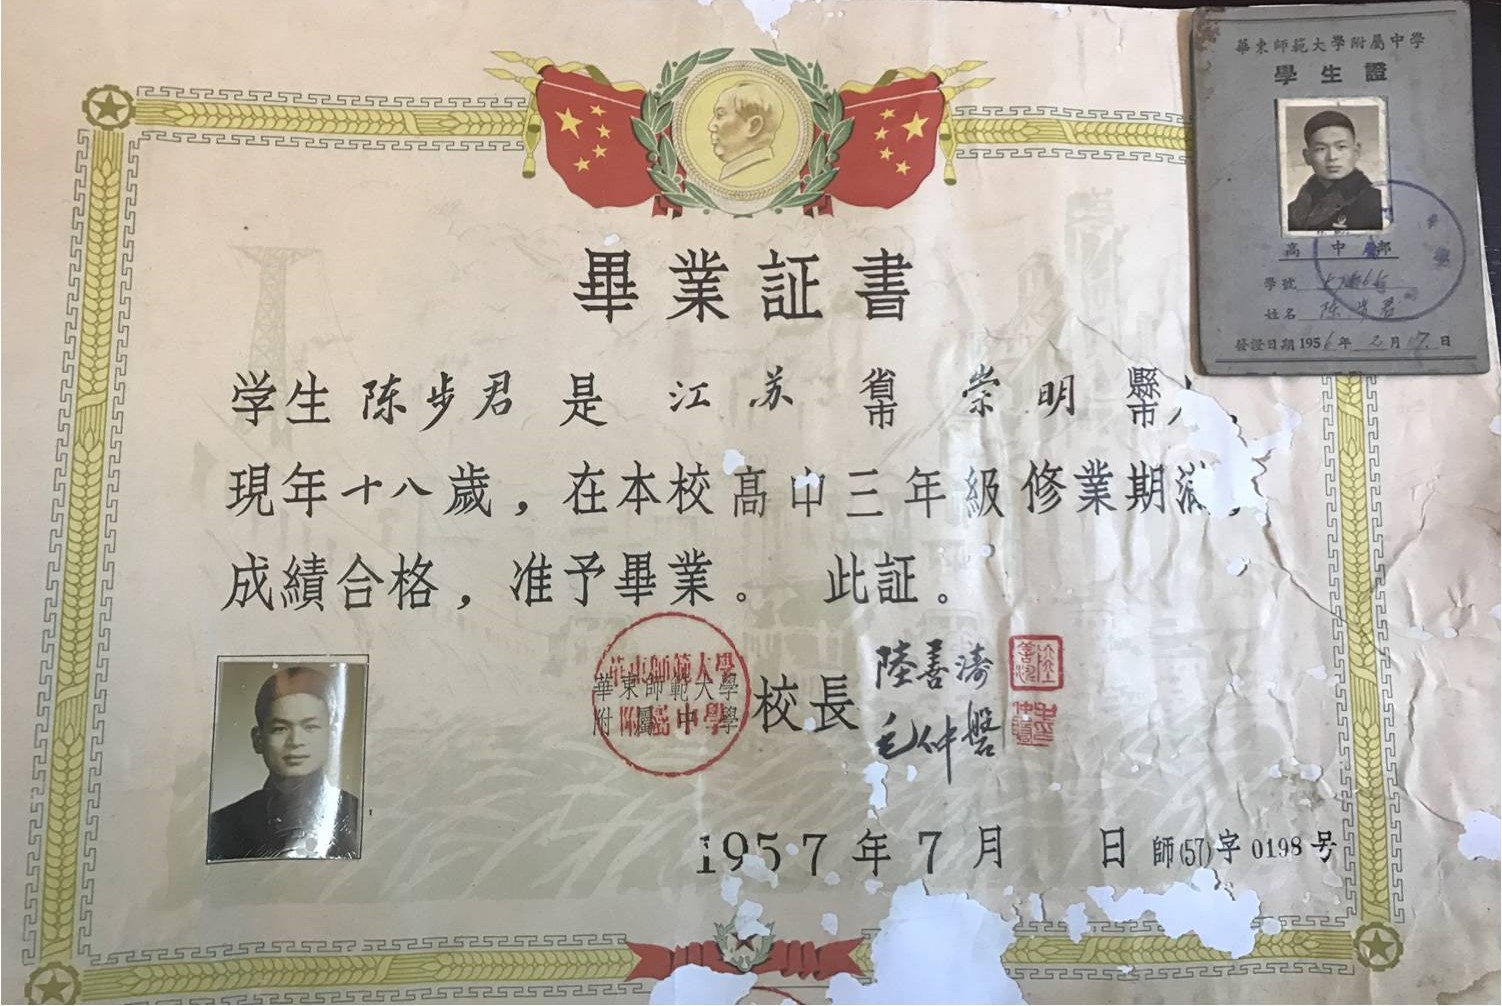 畢業証書
学生陈步君是江苏省市崇明縣市人，
現年十八歲，在本校高中三年級修業期满，
成績合格，准予畢業。此証。
華東師範大學
附屬中學
華東師範大學
附屬中學
校長
陸善濤
毛仲磐
1957年7月 日 師(57)字0198号
華東師範大學附屬中學
學生證
高中部
學號
姓名 陈步君
發證日期1956年2月17日